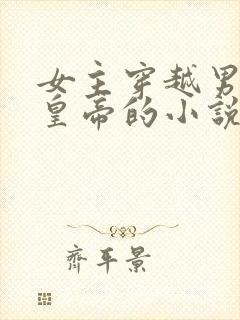 女主穿越男
皇帝的小说
齊平景